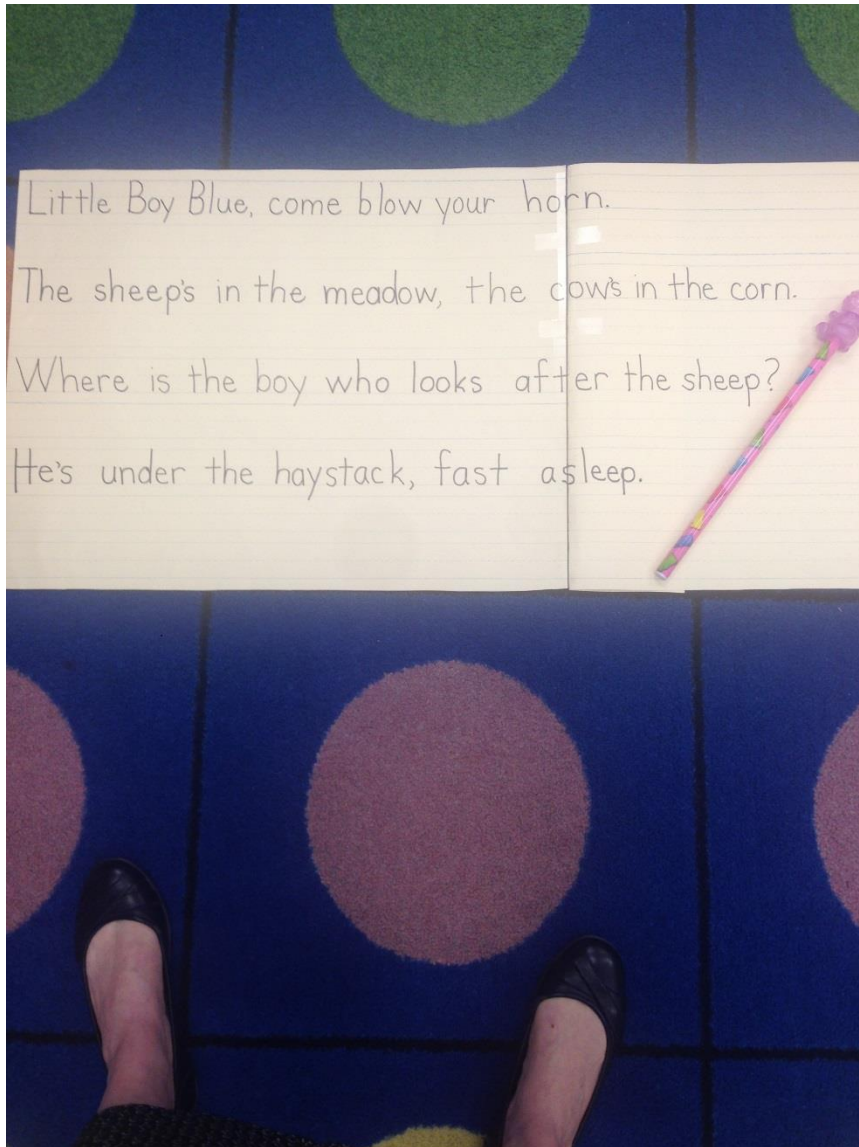 Little Boy Blue, come blow your horn.
The sheep's in the meadow, the cow's in the corn.
Where is the boy who looks after the sheep?
He's under the haystack, fast asleep.